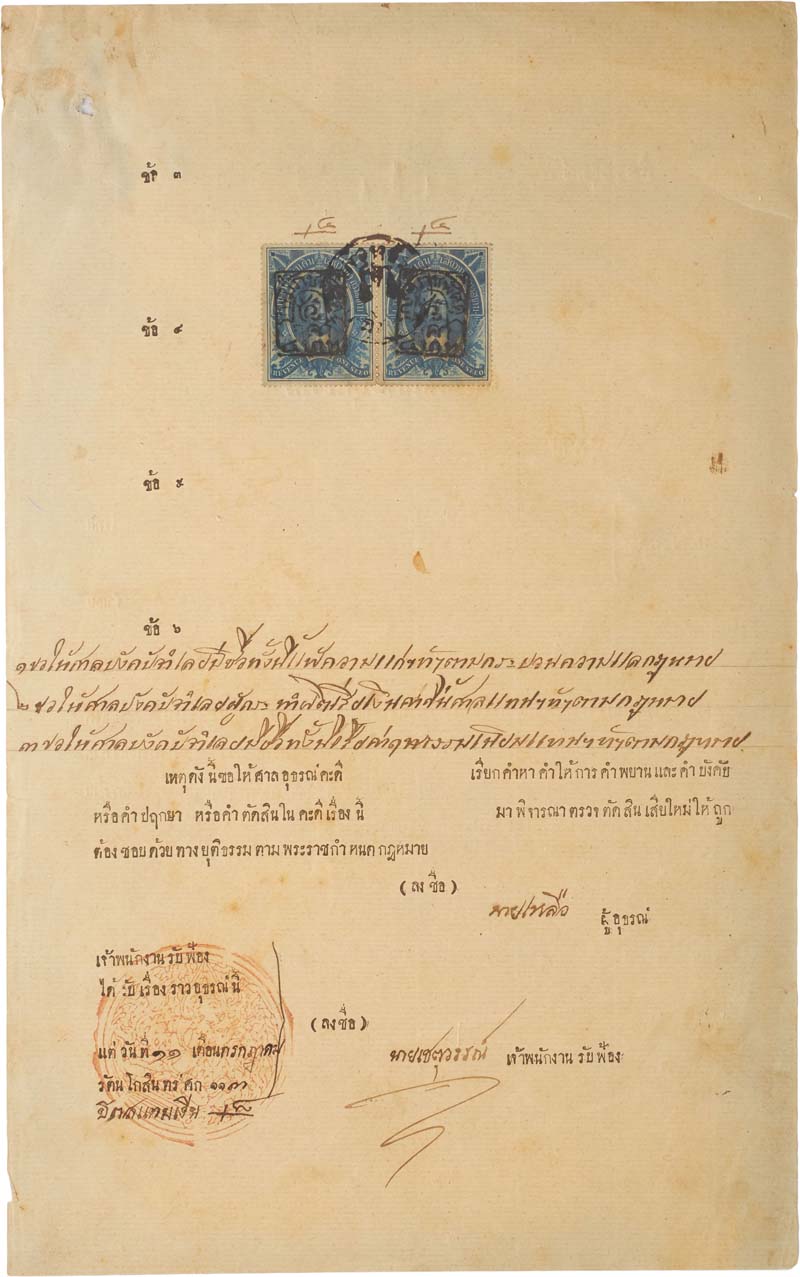 ข้อ ๓
REVENUE ONE SEEO REVENUE ONE SEEO
ข้อ ๔
ข้อ ๕
ข้อ ๖
๑ ขอให้ศาลบังคับจำเลยมีชื่อทั้งนี้แพ้ความแก่ข้าฯตามกระบวนความแลกฎหมาย
๒ ขอให้ศาลบังคับจำเลยผู้กระทำผิดเสียเงินค่าขึ้นศาลแทนข้าฯตามกฎหมาย
๓ ขอให้ศาลบังคับจำเลยมีชื่อทั้งนี้เสียค่าฤทธรรมเนียมแทนข้าฯตามกฎหมาย
เหตุดังนี้ขอให้ศาลอุธรณ์คะดี เรียกคำหา คำให้การ คำพยาน และคำบังคับ
หรือคำปฤกษา หรือคำตัดสินในคะดีเรื่องนี้ มาพิจารณาตรวจตัดสินเสียใหม่ให้ถูก
ต้องชอบด้วยทางยุติธรรมตามพระราชกำหนดกฎหมาย
(ลงชื่อ)
นายเหลือ ผู้อุธรณ์
เจ้าพนักงานรับฟ้อง
ได้รับเรื่องราวอุธรณ์นี้
(ลงชื่อ)
แต่วันที่ ๑๑ เดือนกรกฎาคม นายเชตุวรรณ์ เจ้าพนักงานรับฟ้อง
รัตนโกสินทร์ศก ๑๑๓